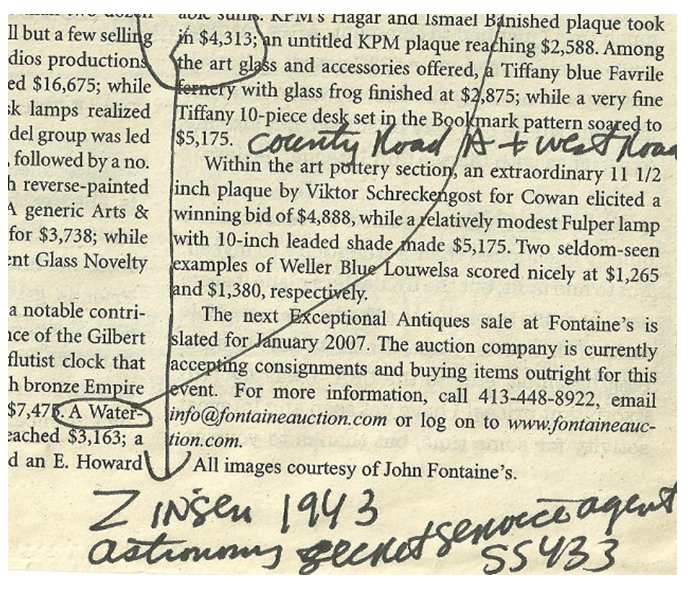 ll but a few selling
dios productions
ed $16,675; while
sk lamps realized
del group was led
, followed by a no.
h reverse-painted
A generic Arts &
for $3,738; while
ent Glass Novelty
a notable contri-
nce of the Gilbert
flutist clock that
h bronze Empire
$7,475. A Water-
eached $3,163; a
d an E. Howard
able sums. KPM's Hagar and Ismael Banished plaque took
in $4,313; an untitled KPM plaque reaching $2,588. Among
the art glass and accessories offered, a Tiffany blue Favrile
fernery with glass frog finished at $2,875; while a very fine
Tiffany 10-piece desk set in the Bookmark pattern soared to
$5,175.
county Road A + west Road
Within the art pottery section, an extraordinary 11 1/2
inch plaque by Viktor Schreckengost for Cowan elicited a
winning bid of $4,888, while a relatively modest Fulper lamp
with 10-inch leaded shade made $5,175. Two seldom-seen
examples of Weller Blue Louwelsa scored nicely at $1,265
and $1,380, respectively.
The next Exceptional Antiques sale at Fontaine's is
slated for January 2007. The auction company is currently
accepting consignments and buying items outright for this
event. For more information, call 413-448-8922, email
info@fontaineauction.com or log on to www.fontaineauc-
tion.com.
All images courtesy of John Fontaine's.
Z insen 1943
astronomy secret service agent
SS433